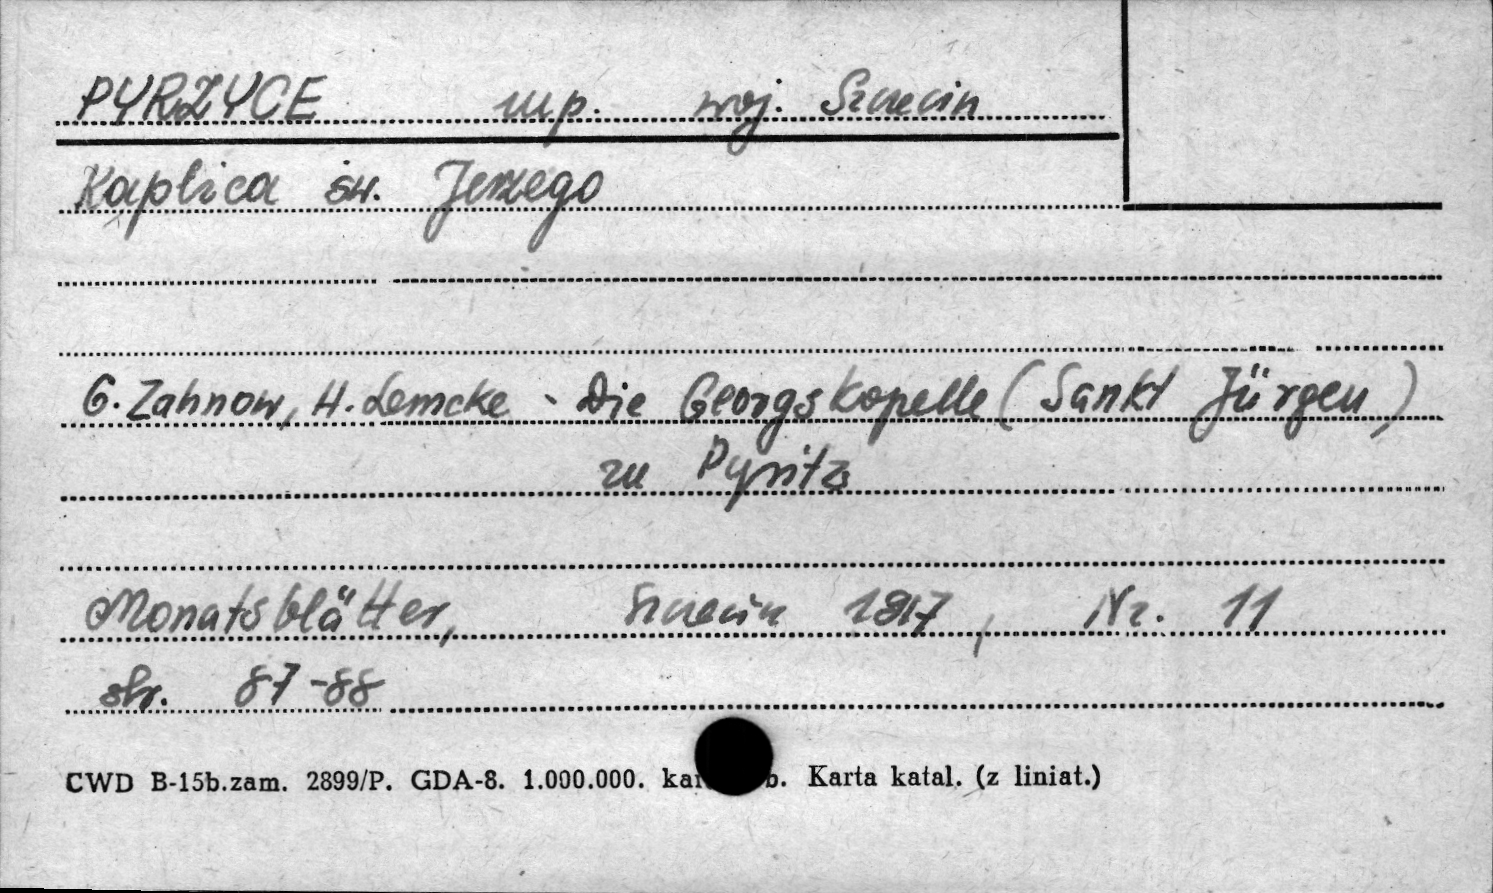 PYRZYCE mp. woj. Szczecin
Kaplica św. Jerzego
G. Zahnow, H. Lemcke - Die Georgskapelle (Sankt Jürgen)
zu Pyritz
Monatsblätter, Szczecin 1917, Nr. 11
str. 87-88
CWD B-15b.zam. 2899/P. GDA-8. 1.000.000. Karta katal. (z liniat.)